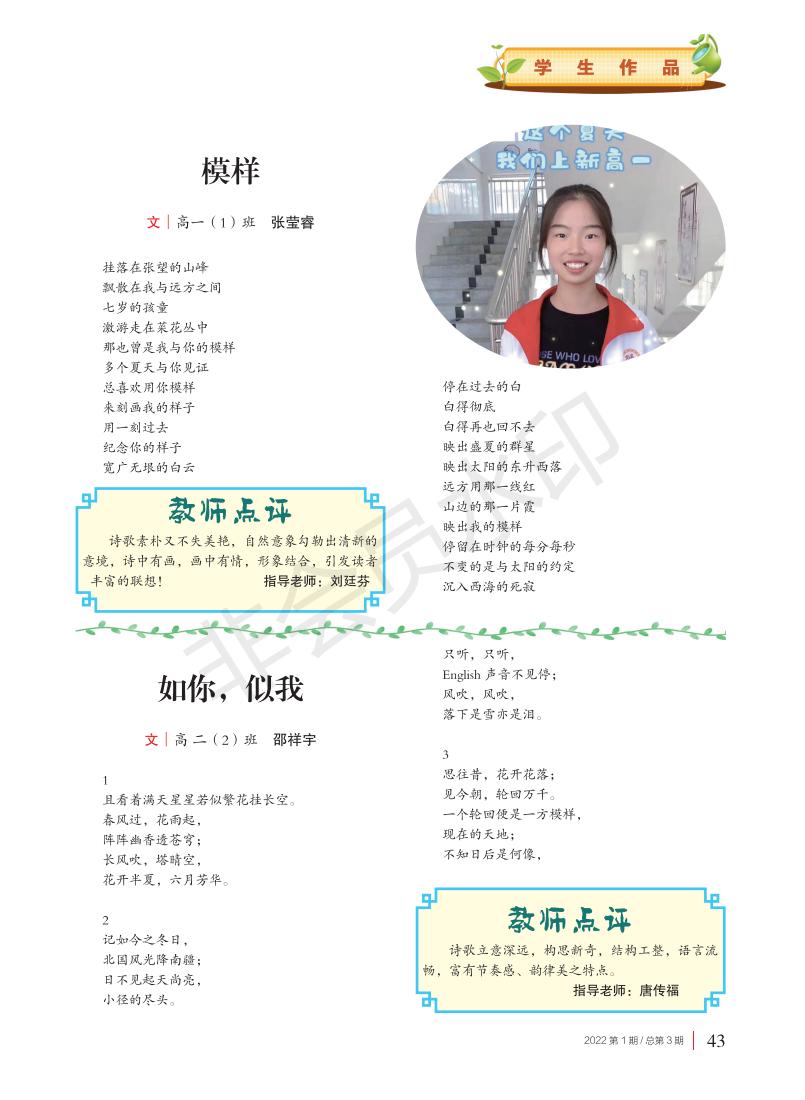 学生作品
这个夏天
我们上新高一
模样
文｜高一（1）班 张莹睿
挂落在张望的山峰
飘散在我与远方之间
七岁的孩童
遨游走在菜花丛中
那也曾是我与你的模样
多个夏天与你见证
总喜欢用你模样
来刻画我的样子
用一刻过去
纪念你的样子
宽广无垠的白云
停在过去的白
白得彻底
白得再也回不去
映出盛夏的群星
映出太阳的东升西落
远方用那一线红
山边的那一片霞
映出我的模样
停留在时钟的每分每秒
不变的是与太阳的约定
沉入西海的死寂
教师点评
诗歌素朴又不失美艳，自然意象勾勒出清新的
意境，诗中有画，画中有情，形象结合，引发读者
丰富的联想！ 指导老师：刘廷芬
如你，似我
文｜高 二（2）班 邵祥宇
1
且看着满天星星若似繁花挂长空。
春风过，花雨起，
阵阵幽香透苍穹；
长风吹，塔晴空，
花开半夏，六月芳华。
2
记如今之冬日，
北国风光降南疆；
日不见起天尚亮，
小径的尽头。
只听，只听，
English 声音不见停；
风吹，风吹，
落下是雪亦是泪。
3
思往昔，花开花落；
见今朝，轮回万千。
一个轮回便是一方模样，
现在的天地；
不知日后是何像，
教师点评
诗歌立意深远，构思新奇，结构工整，语言流
畅，富有节奏感、韵律美之特点。
指导老师：唐传福
2022 第 1 期 / 总第 3 期 43
非会员水印